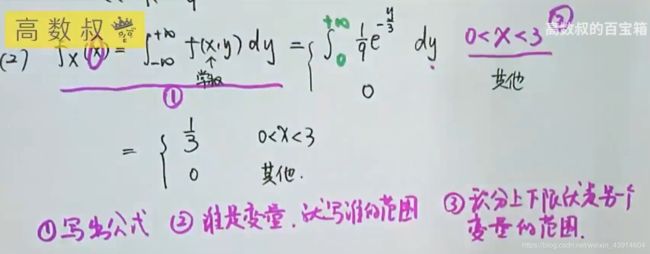 高数叔
高数叔的百宝箱
(2) f_X(x) = ∫_{-∞}^{+∞} f(x,y) dy = { ∫_0^{+∞} 1/9 e^{-y/3} dy 0<x<3 ②
常数
① 0 其他
= { 1/3 0<x<3
0 其他.
①写出公式 ②谁是变量,就写谁的范围 ③积分上下限就是另一个
变量的范围.
https://blog.csdn.net/weixin_43914604